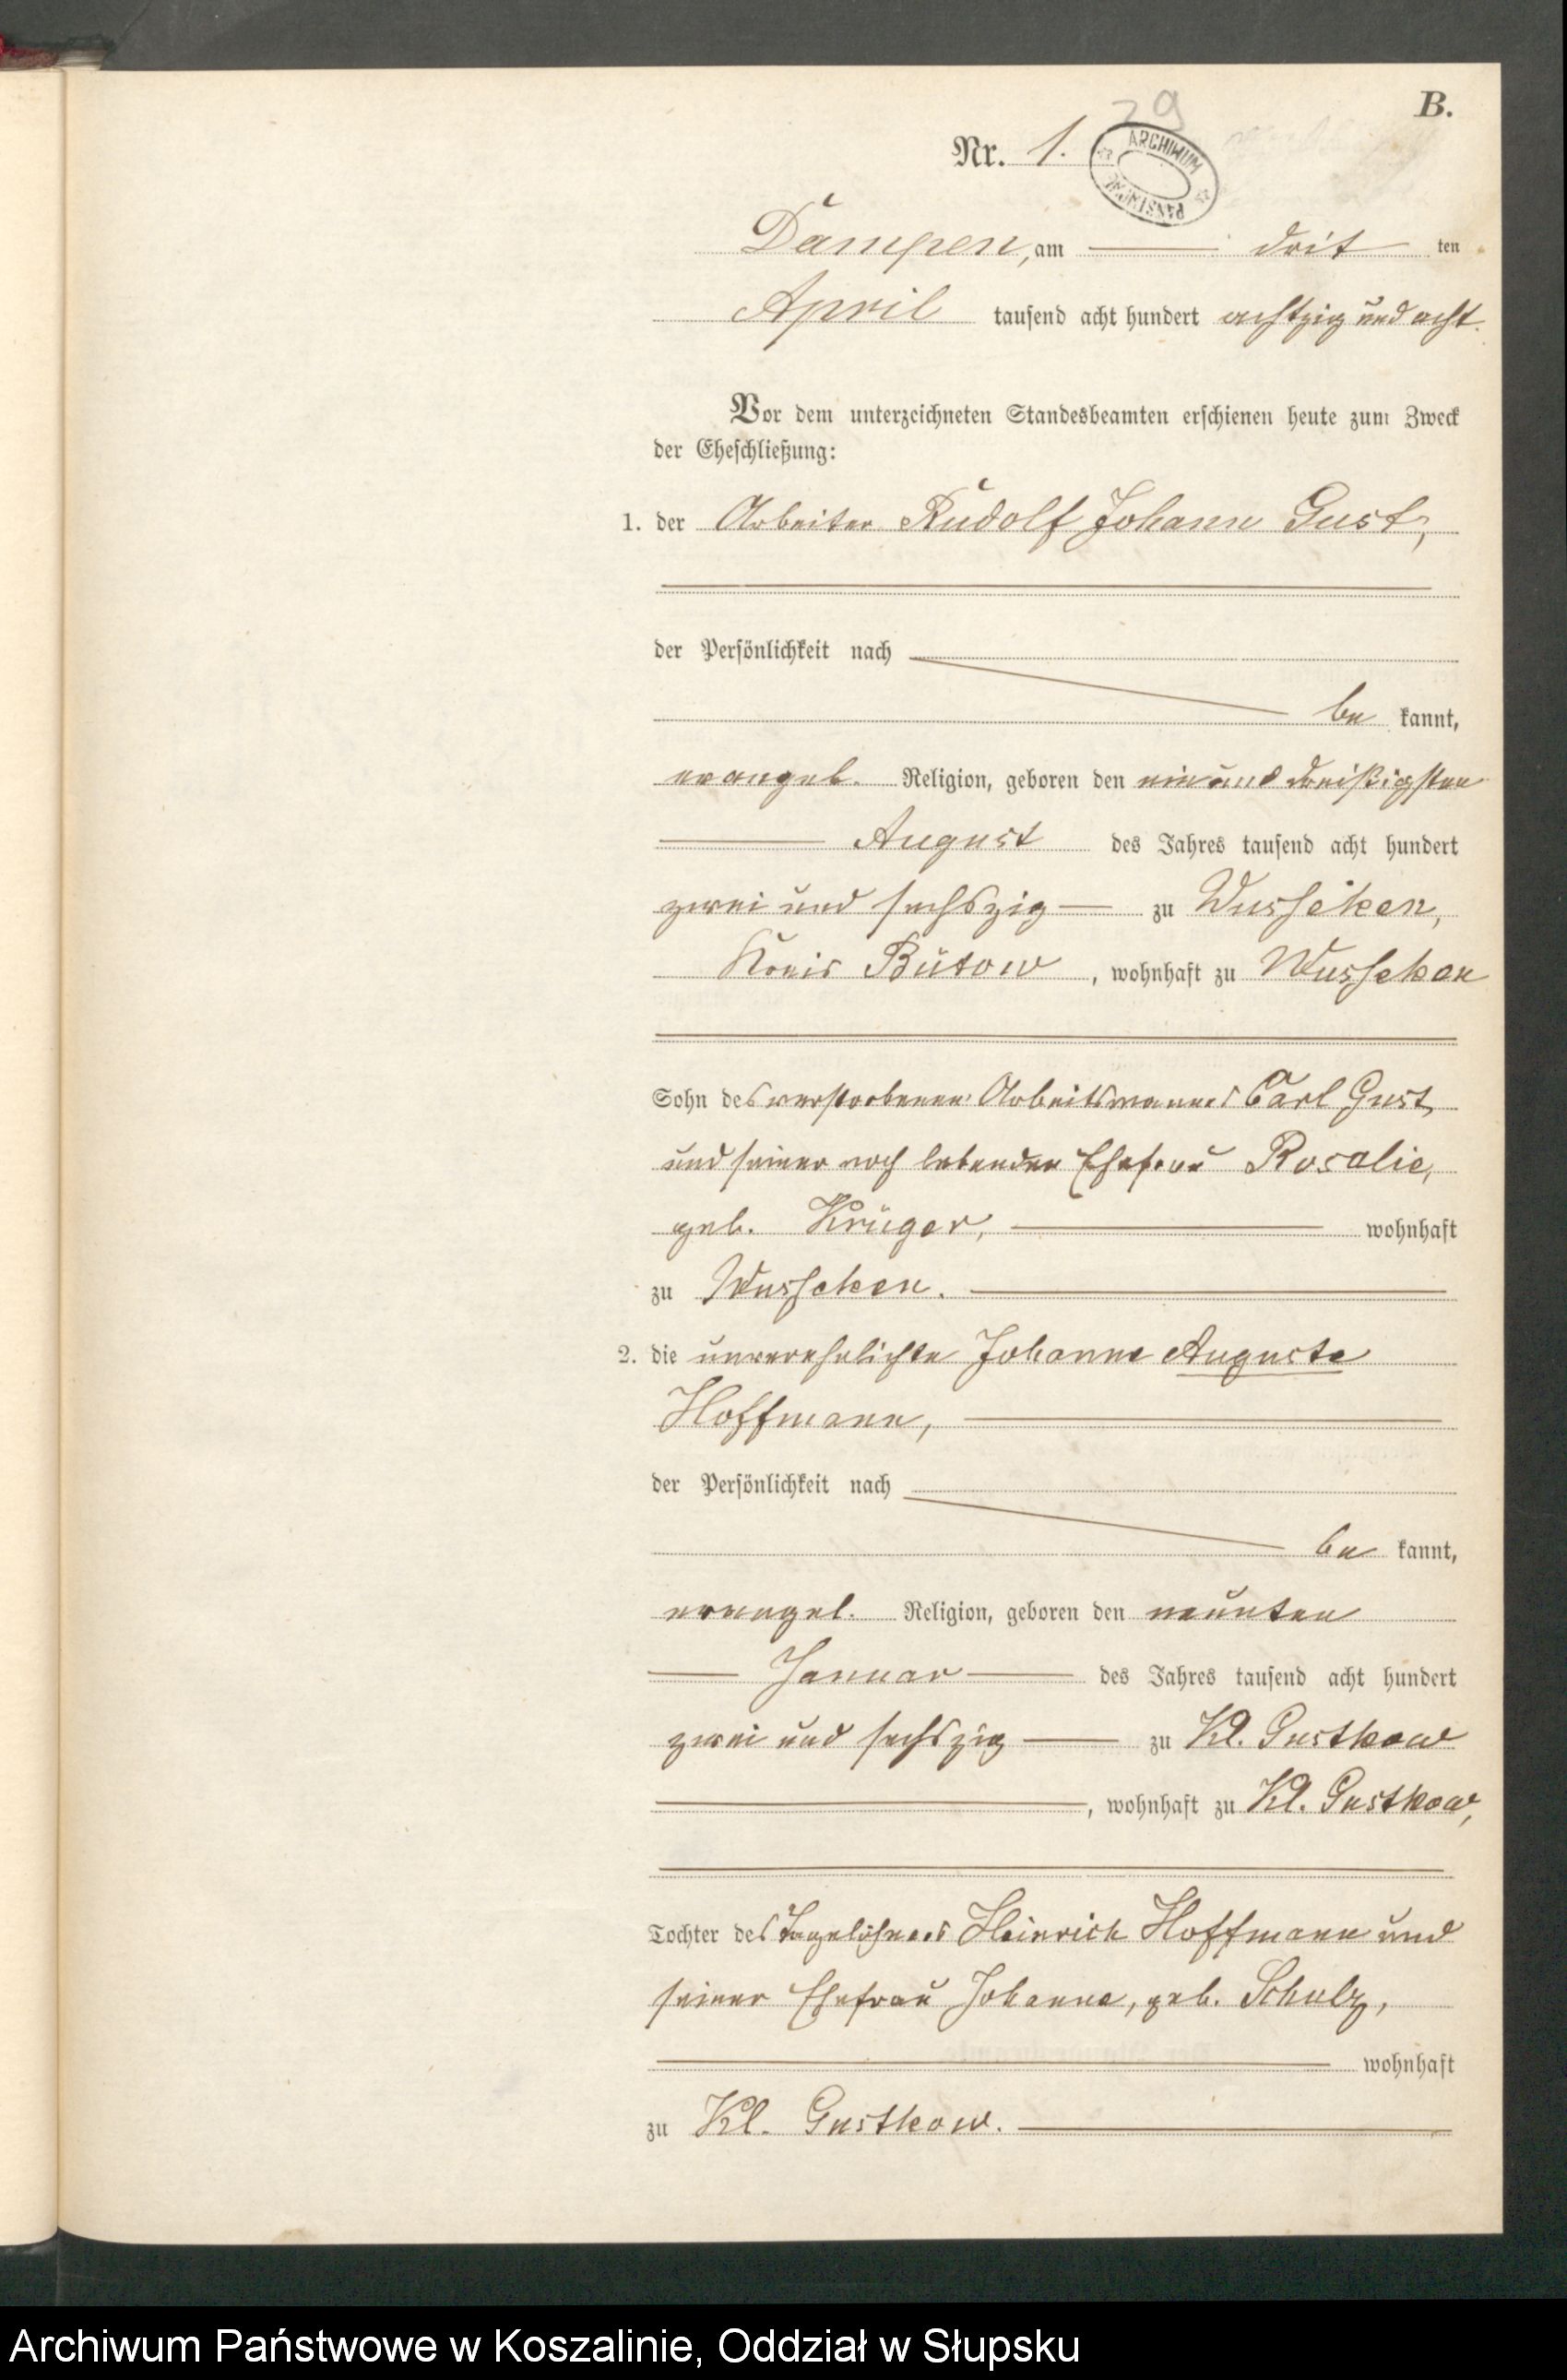 B.
29
Nr. 1.
ARCHIWUM PAŃSTWOWE
Dampen, am drit ten
April tausend acht hundert achtzig und acht.
Vor dem unterzeichneten Standesbeamten erschienen heute zum Zweck
der Eheschließung:
1. der Arbeiter Rudolf Johann Gust,
der Persönlichkeit nach
be kannt,
evangel. Religion, geboren den einund dreißigsten
August des Jahres tausend acht hundert
zwei und sechszig zu Wusseken,
Kreis Bütow, wohnhaft zu Wusseken
Sohn des verstorbenen Arbeitsmannes Carl Gust,
und seiner noch lebenden Ehefrau Rosalie,
geb. Krüger, wohnhaft
zu Wusseken.
2. die unverehelichte Johanne Auguste
Hoffmann,
der Persönlichkeit nach
be kannt,
evangel. Religion, geboren den neunten
Januar des Jahres tausend acht hundert
zwei und sechszig zu Kl. Gustkow
, wohnhaft zu Kl. Gustkow,
Tochter des Tagelöhners Heinrich Hoffmann und
seiner Ehefrau Johanne, geb. Schulz,
wohnhaft
zu Kl. Gustkow.
Archiwum Państwowe w Koszalinie, Oddział w Słupsku